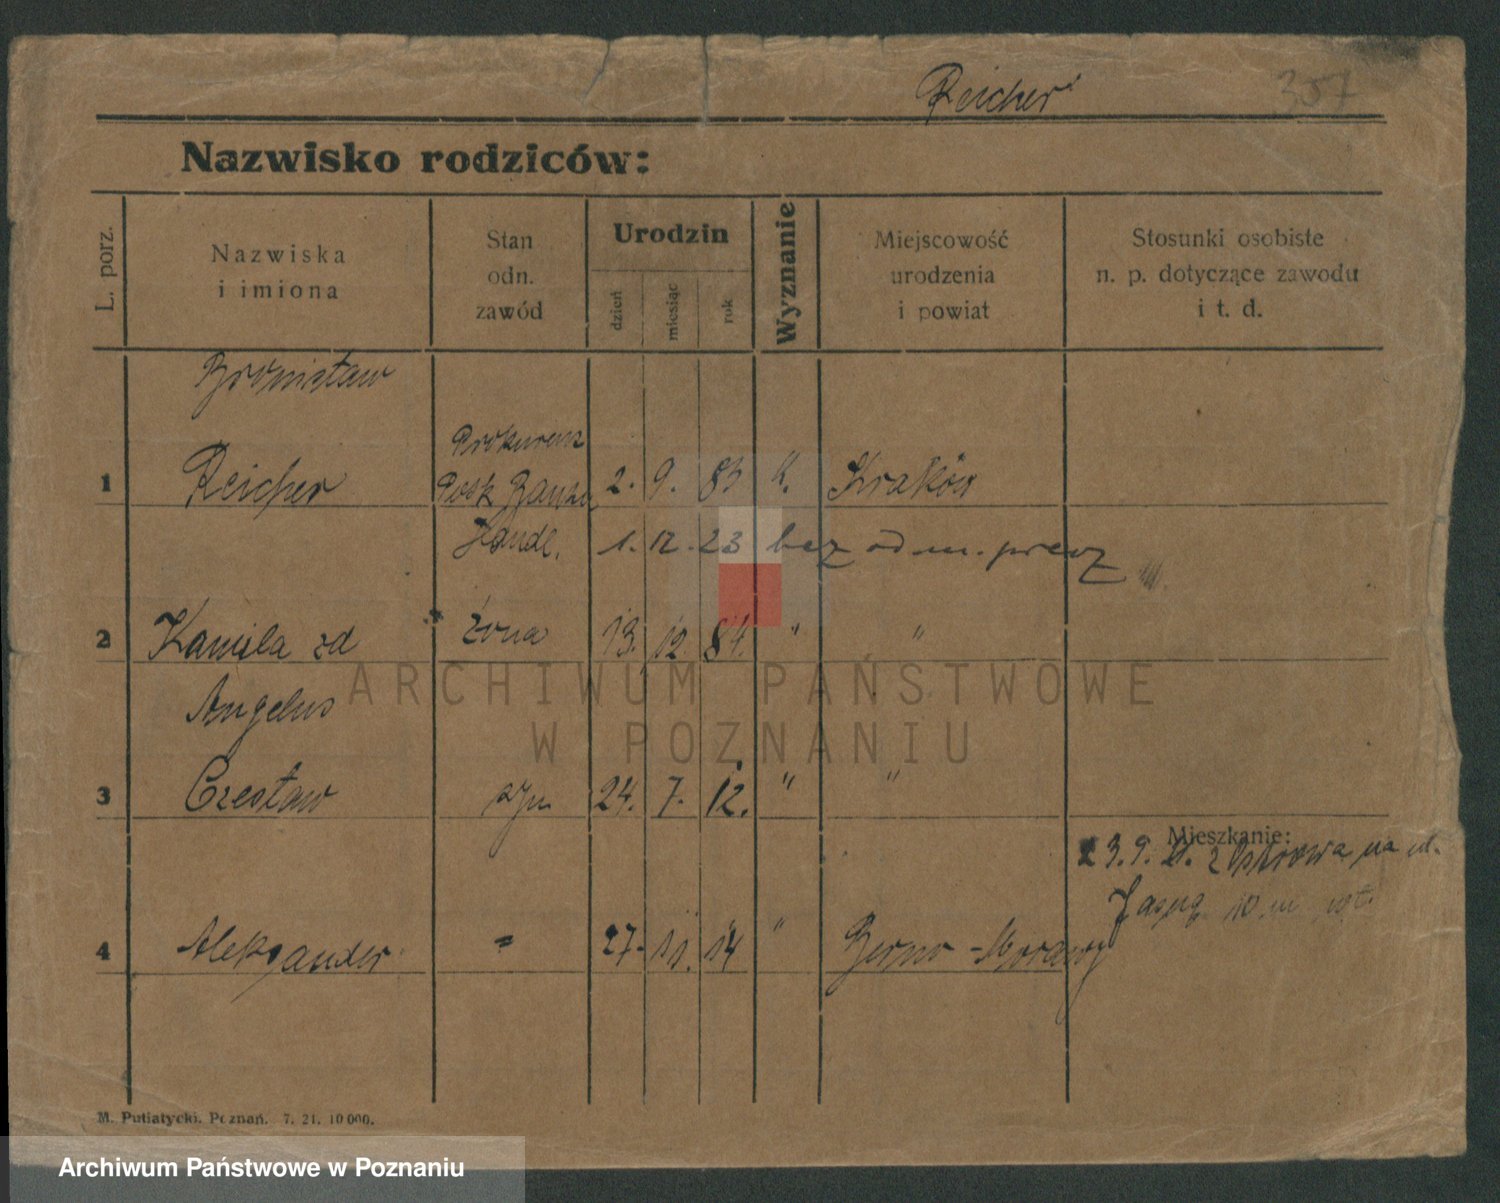 Reicher
307
Nazwisko rodziców:
L. porz.
Nazwiska
i imiona
Stan
odn.
zawód
Urodzin
dzień
miesiąc
rok
Wyznanie
Miejscowość
urodzenia
i powiat
Stosunki osobiste
n. p. dotyczące zawodu
i t. d.
Bronisław
Prokurent
1 Reicher Polsk Banku 2. 9. 83 k. Kraków
Handl. 1. 12. 23 bez odm. precz
2 Kamila zd żona 13. 12. 84. " "
Angelus
3 Czesław syn 24. 7. 12. " "
Mieszkanie:
23.9. 21. z Ostrowa na ul.
10 m
4 Aleksander " 27. 11. 14 " Berno - Morawy
M. Putiatycki. Poznań. 7. 21. 10 000.
ARCHIWUM PAŃSTWOWE
W POZNANIU
Archiwum Państwowe w Poznaniu